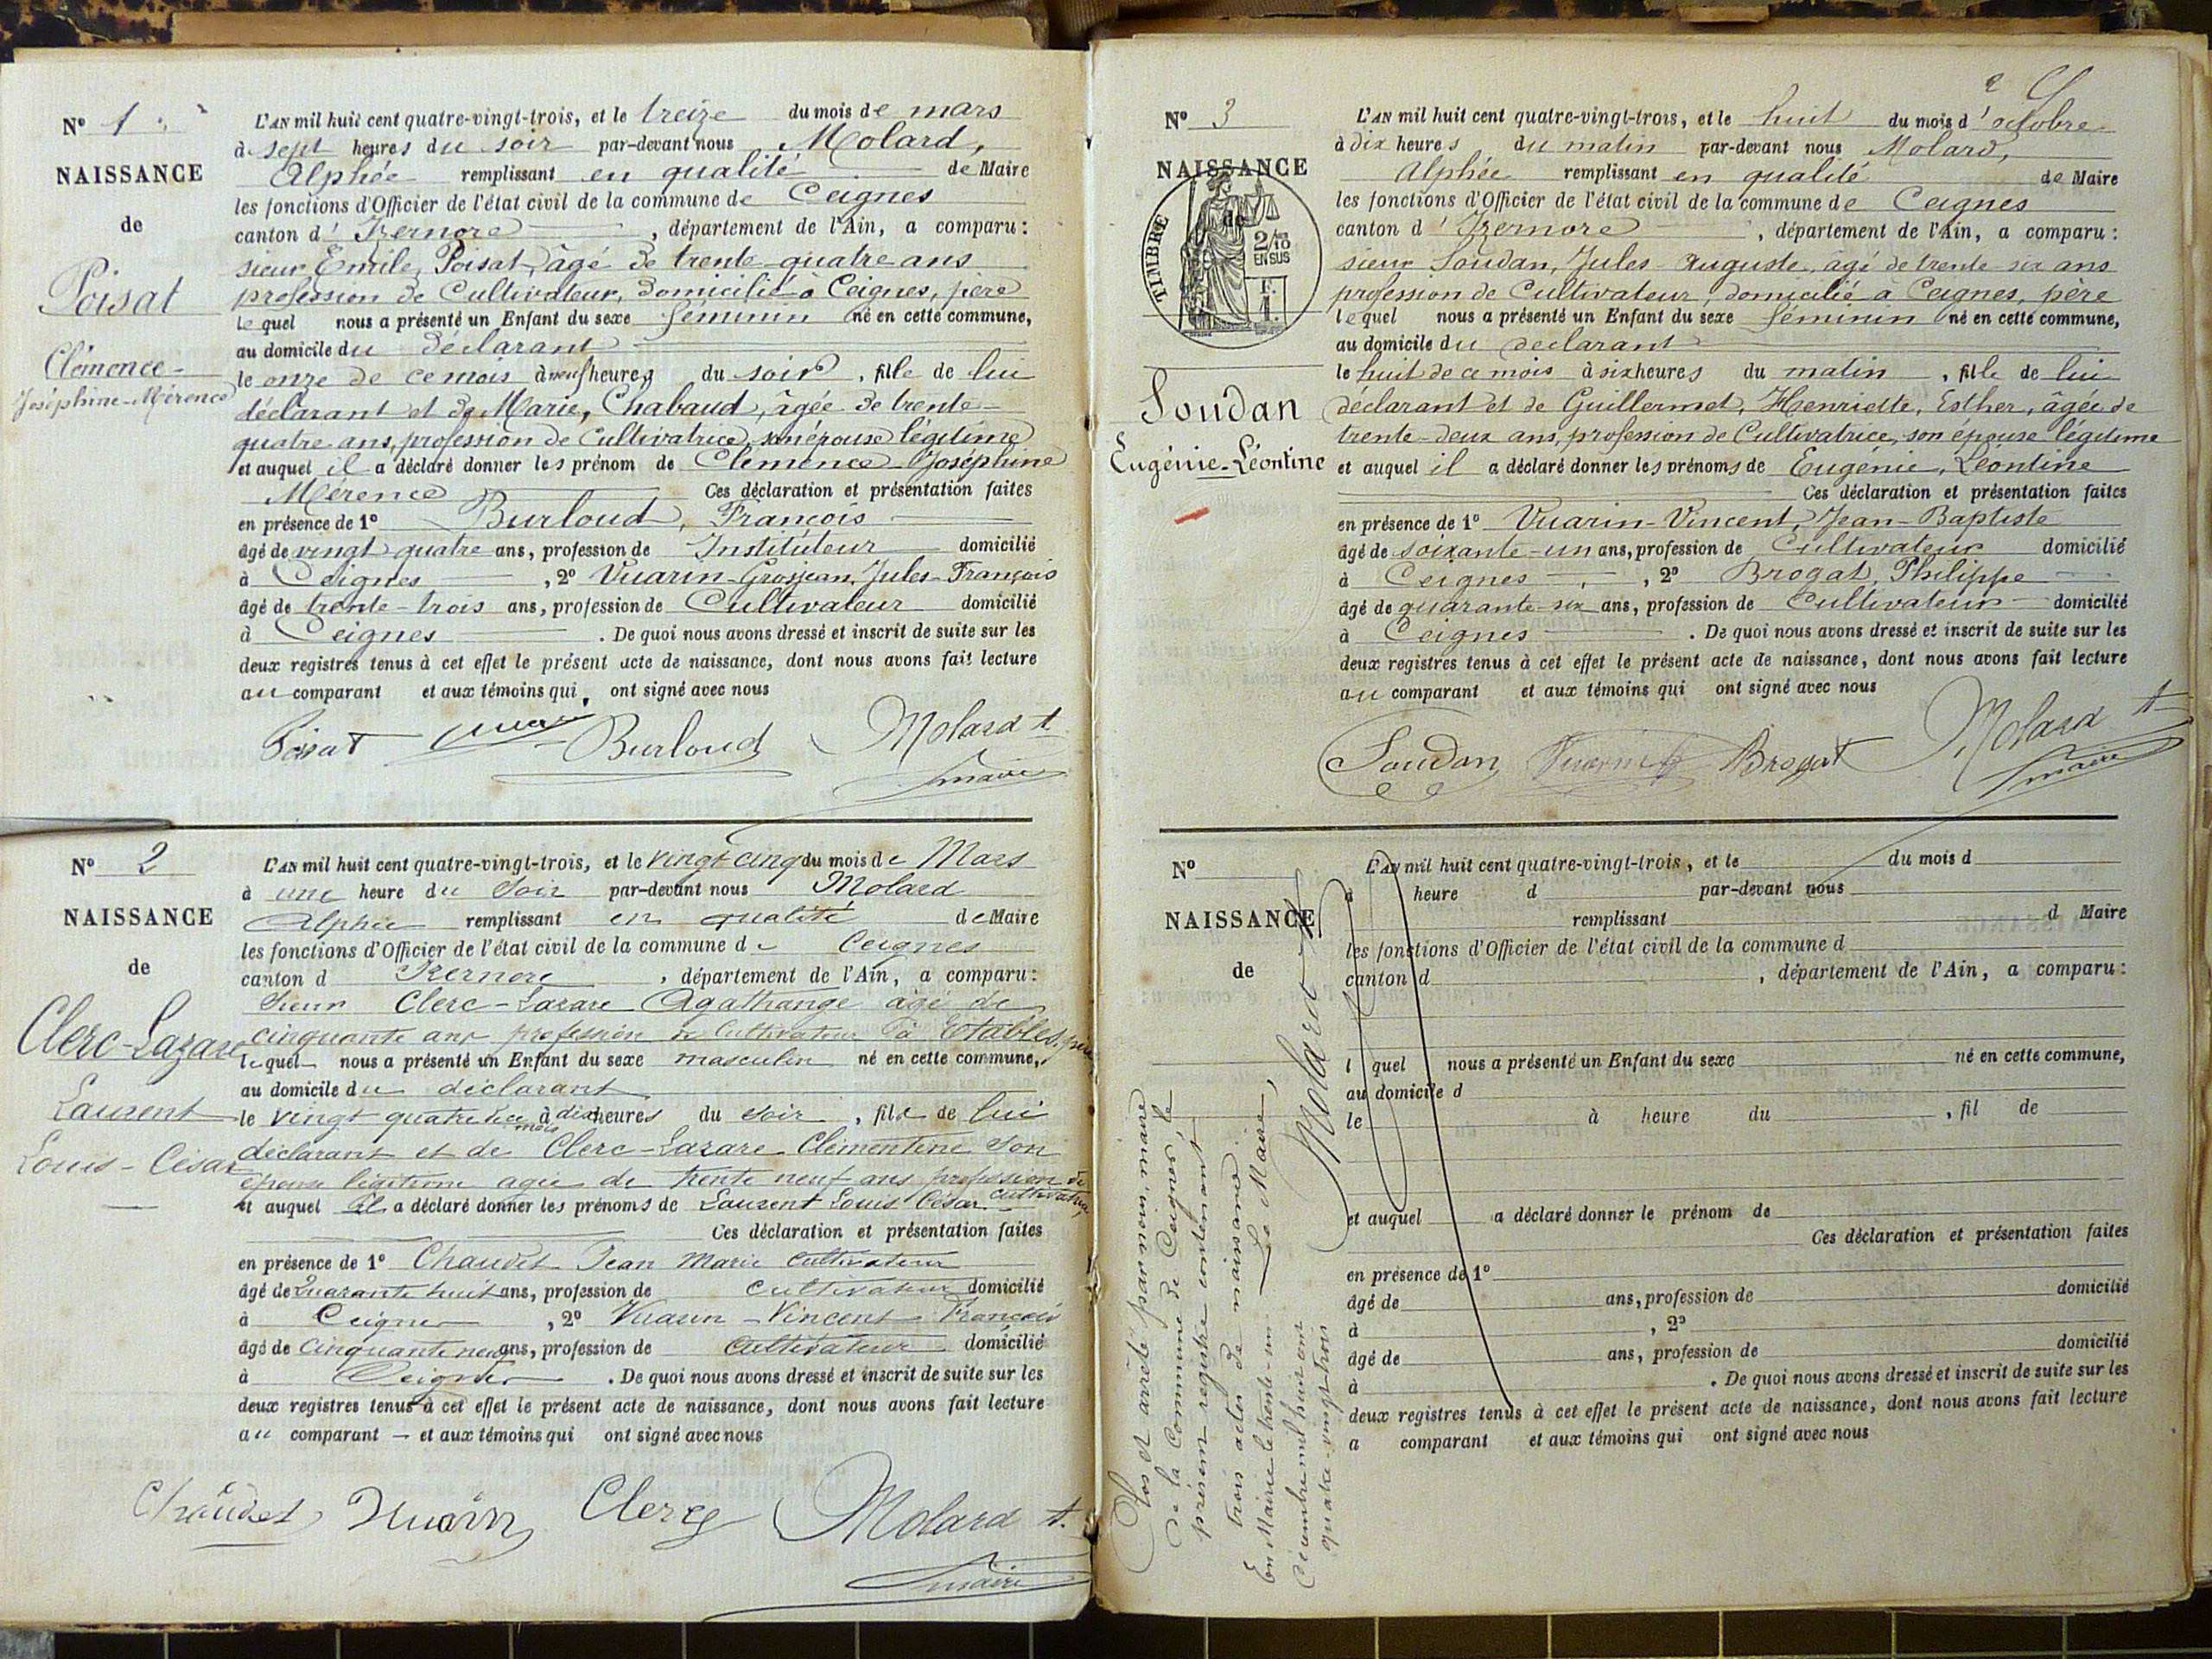 N° 1
NAISSANCE
de
Poisat
Clémence-
Joséphine-Mérence
L'AN mil huit cent quatre-vingt-trois, et le treize du mois de mars
à sept heures du soir par-devant nous Molard,
Alphée remplissant en qualité de Maire
les fonctions d'Officier de l'état civil de la commune de Ceignes
canton d'Izernore, département de l'Ain, a comparu:
sieur Emile, Poisat, âgé de trente-quatre ans
profession de Cultivateur, domicilié à Ceignes, père
lequel nous a présenté un Enfant du sexe féminin né en cette commune,
au domicile du déclarant
le onze de ce mois à neuf heures du soir, fille de lui
déclarant et de Marie, Chabaud, âgée de trente-
quatre ans, profession de Cultivatrice, son épouse légitime
et auquel il a déclaré donner les prénom de Clémence-Joséphine
Mérence Ces déclaration et présentation faites
en présence de 1° Burloud, François
âgé de vingt quatre ans, profession de Instituteur domicilié
à Ceignes, 2° Vuarin-Grosjean, Jules-François
âgé de trente-trois ans, profession de Cultivateur domicilié
à Ceignes. De quoi nous avons dressé et inscrit de suite sur les
deux registres tenus à cet effet le présent acte de naissance, dont nous avons fait lecture
au comparant et aux témoins qui ont signé avec nous
Poisat Burloud Molard A.
maire
N° 2
NAISSANCE
de
Clerc-Lazare
Laurent
Louis-César
L'AN mil huit cent quatre-vingt-trois, et le vingt cinq du mois de Mars
à une heure du soir par-devant nous Molard
Alphée remplissant en qualité de Maire
les fonctions d'Officier de l'état civil de la commune de Ceignes
canton d Izernore, département de l'Ain, a comparu:
Sieur Clerc-Lazare Agathange agé de
cinquante ans profession de Cultivateur à Etables, père
lequel nous a présenté un Enfant du sexe masculin né en cette commune,
au domicile du déclarant
le vingt quatre de ce mois à dix heures du soir, fils de lui
déclarant et de Clerc-Lazare Clémentine son
épouse légitime agée de trente neuf ans profession de cultivatrice,
et auquel il a déclaré donner les prénoms de Laurent Louis César
Ces déclaration et présentation faites
en présence de 1° Chaudet Jean Marie cultivateur
âgé de quarante huit ans, profession de cultivateur domicilié
à Ceignes, 2° Vuarin-Vincent François
âgé de Cinquante neuf ans, profession de cultivateur domicilié
à Ceignes. De quoi nous avons dressé et inscrit de suite sur les
deux registres tenus à cet effet le présent acte de naissance, dont nous avons fait lecture
au comparant - et aux témoins qui ont signé avec nous
Chaudet Vuarin Clerc Molard A.
maire
2
N° 3
NAISSANCE
de
TIMBRE
2/10
EN SUS
1 F.
Soudan
Eugénie-Léontine
L'AN mil huit cent quatre-vingt-trois, et le huit du mois d'octobre
à dix heures du matin par-devant nous Molard,
Alphée remplissant en qualité de Maire
les fonctions d'Officier de l'état civil de la commune de Ceignes
canton d'Izernore, département de l'Ain, a comparu:
sieur Soudan, Jules-Auguste, âgé de trente-six ans
profession de Cultivateur, domicilié à Ceignes, père
lequel nous a présenté un Enfant du sexe féminin né en cette commune,
au domicile du déclarant
le huit de ce mois à six heures du matin, fille de lui
déclarant et de Guillermet, Henriette, Esther, âgée de
trente-deux ans, profession de Cultivatrice, son épouse légitime
et auquel il a déclaré donner les prénoms de Eugénie, Léontine
Ces déclaration et présentation faites
en présence de 1° Vuarin-Vincent, Jean-Baptiste
âgé de soixante-un ans, profession de Cultivateur domicilié
à Ceignes, 2° Brogat, Philippe
âgé de quarante-six ans, profession de Cultivateur domicilié
à Ceignes. De quoi nous avons dressé et inscrit de suite sur les
deux registres tenus à cet effet le présent acte de naissance, dont nous avons fait lecture
au comparant et aux témoins qui ont signé avec nous
Soudan Brogat Molard A.
maire
N°
NAISSANCE
de
L'AN mil huit cent quatre-vingt-trois, et le du mois d
à heure d par-devant nous
remplissant d Maire
les fonctions d'Officier de l'état civil de la commune d
canton d, département de l'Ain, a comparu:
l quel nous a présenté un Enfant du sexe né en cette commune,
au domicile d
le à heure du, fil de
et auquel a déclaré donner le prénom de
Ces déclaration et présentation faites
en présence de 1°
âgé de ans, profession de domicilié
à, 2°
âgé de ans, profession de domicilié
à. De quoi nous avons dressé et inscrit de suite sur les
deux registres tenus à cet effet le présent acte de naissance, dont nous avons fait lecture
a comparant et aux témoins qui ont signé avec nous
Clos et arrêté par nous, maire
de la Commune de Ceignes, le
présent registre contenant
trois actes de naissance
En Mairie le trente-un
Décembre mil huit cent
quatre-vingt-trois
Le Maire,
Molard A.